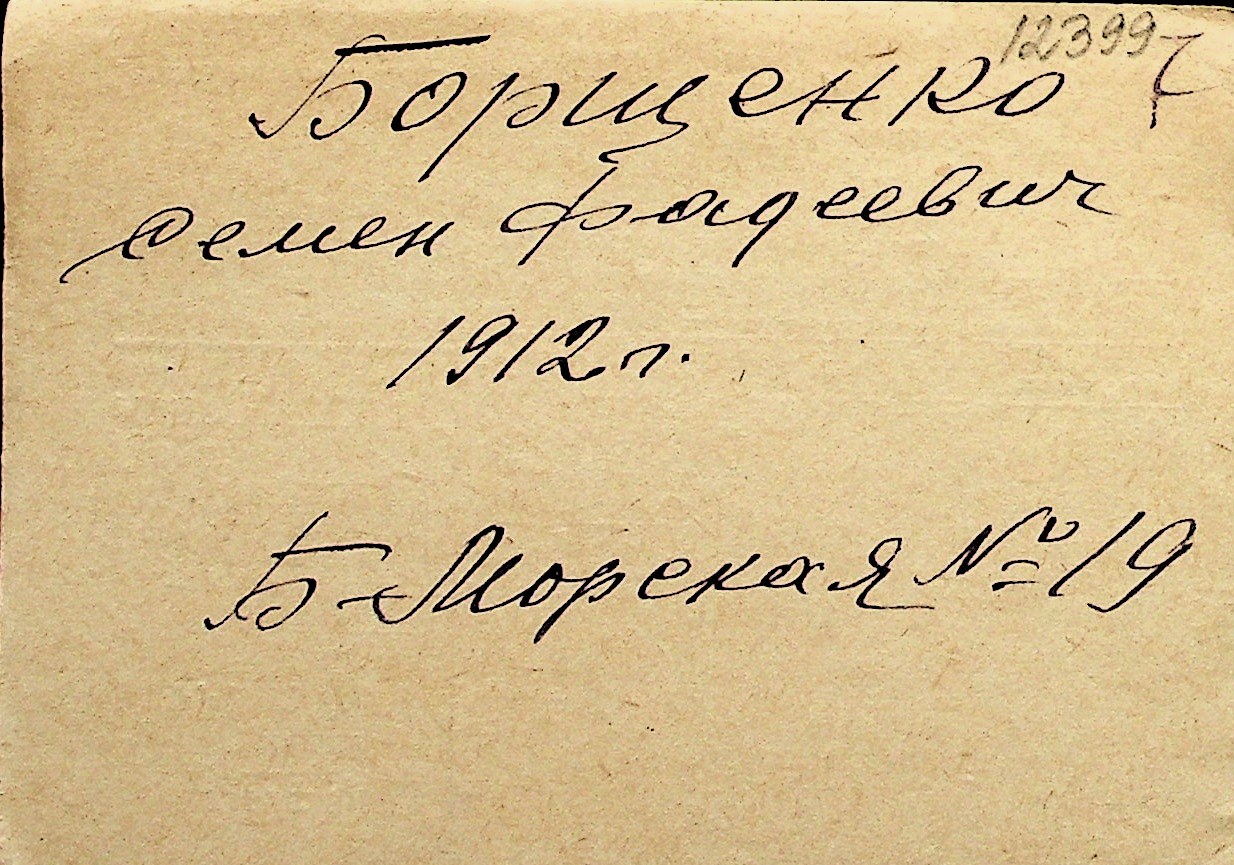 12399
Борщенко
Семен Фадеевич
1912 г.
Б-Морская № 19